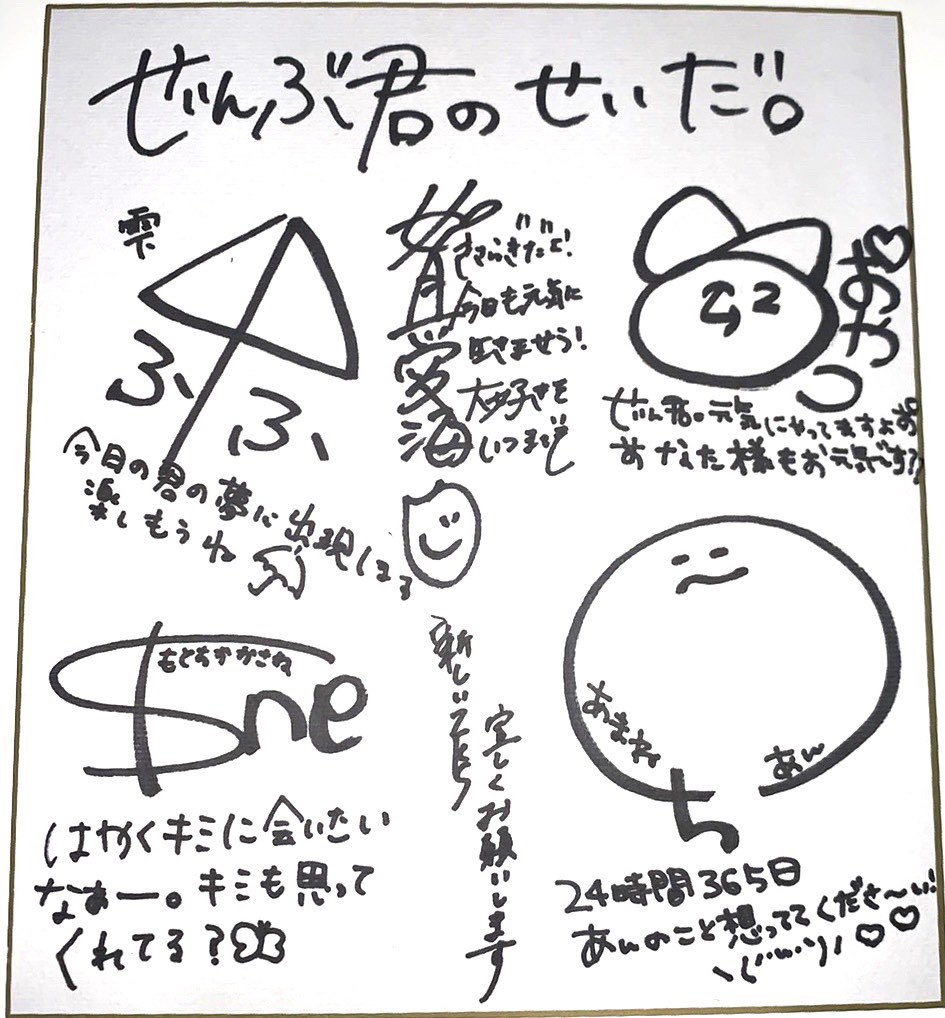 ぜんぶ君のせいだ。
雫
ふふ
今日の君の夢に出現しまる
楽しもうね
如月愛海
きさらぎだよ!
今日も元気に
大好きを
いつまでも
おやつ
ぜん君。元気にやってますよお
あなた様もお元気です??
もとちかかさね
$ne
はやくキミに会いたい
なぁー。キミも思って
くれてる?
宜しくお願いします
あまね
あん
ち
24時間365日
あんのこと想っててくださ〜い!